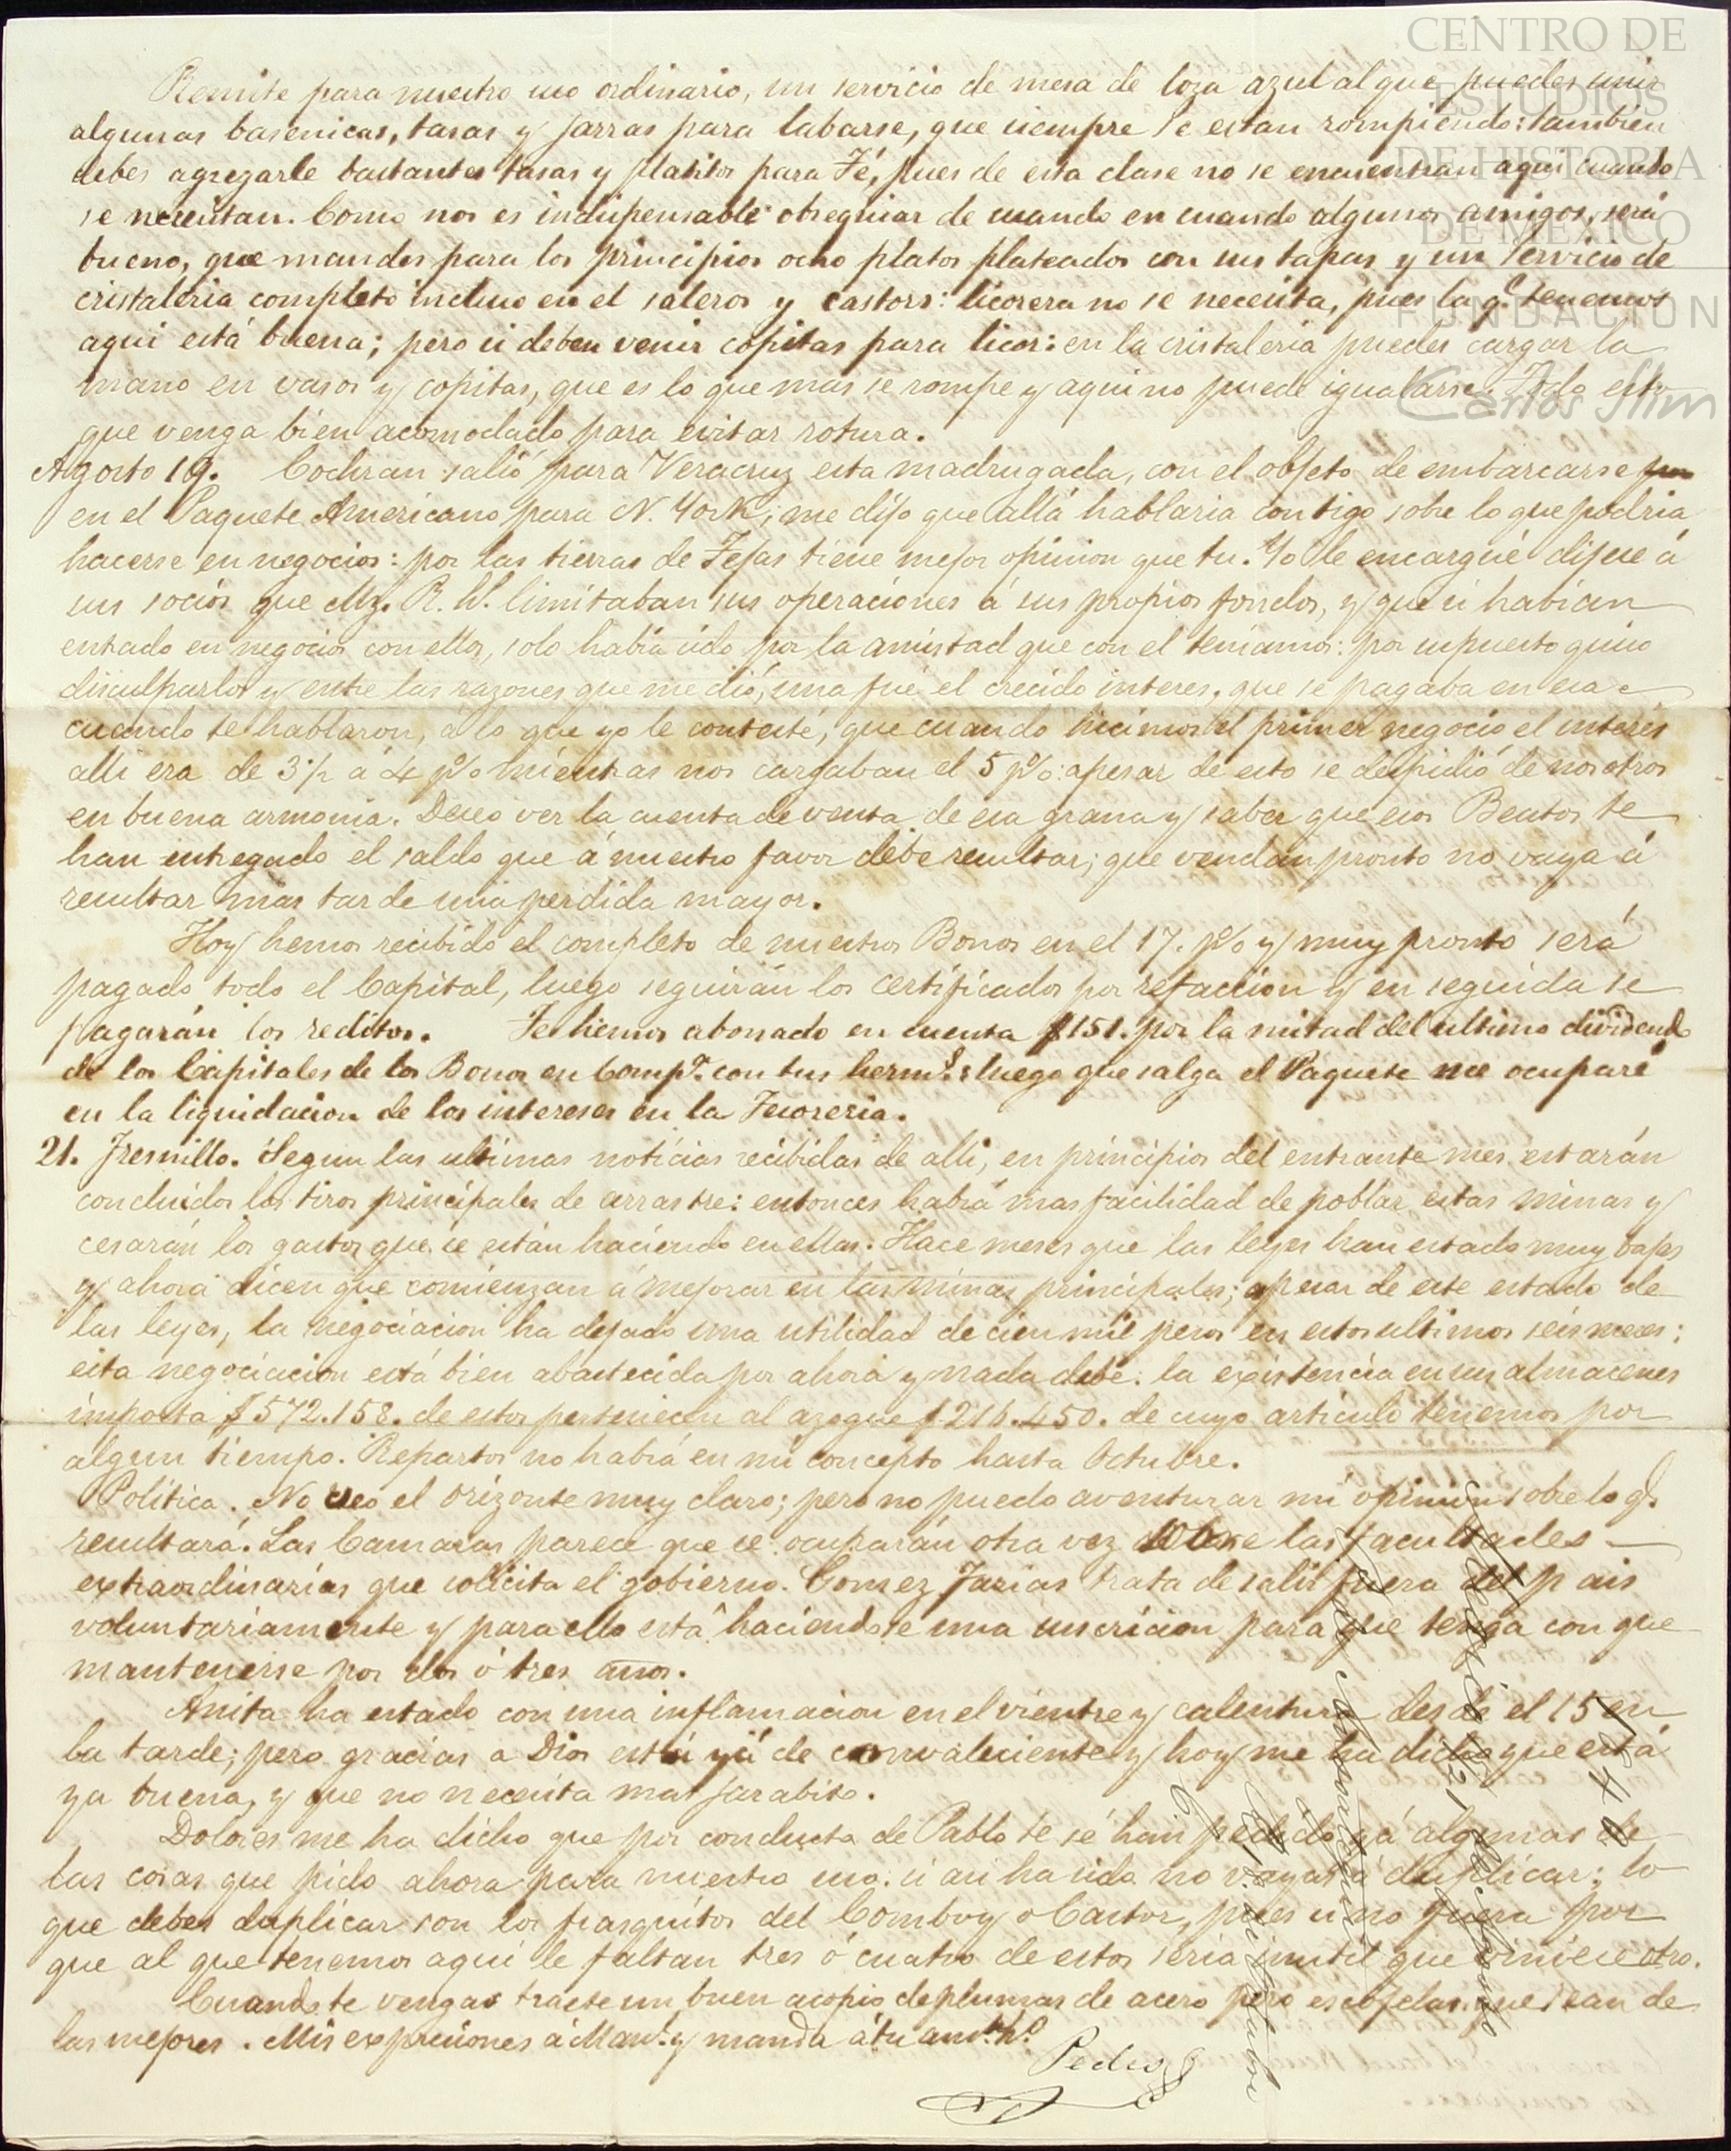 CENTRO DE
ESTUDIOS
DE HISTORIA
DE MEXICO
FUNDACION
Carlos Slim
Remite para nuestro uso ordinario, un servicio de mesa de loza azul al que puedes unir
algunas basenicas, tasas y jarras para labarse, que siempre se estan rompiendo: tambien
debes agregarle bastantes tasas y platitos para Té, pues de esta clase no se encuentran aqui cuando
se necesitan. Como nos es indispensable obsequiar de cuando en cuando algunos amigos, será
bueno, que mandes para los principios ocho platos plateados con sus tapas y un servicio de
cristaleria completo incluso en el saleros y castors: licorera no se necesita, pues la q.e tenemos
aqui está buena; pero si deben venir copitas para licor: en la cristaleria puedes cargar la
mano en vasos y copitas, que es lo que mas se rompe y aqui no puede igualarse. Todo esto
que venga bien acomodado para evitar rotura.
Agosto 19. Cochran salió para Veracruz esta madrugada, con el objeto de embarcarse
en el Paquete Americano para N. York; me dijo que allá hablaria contigo sobre lo que podria
hacerse en negocios: por las tierras de Tejas tiene mejor opinion que tu. Yo le encargué dijese á
sus socios que Mz. R. W. limitaban sus operaciones á sus propios fondos, y que si habian
entrado en negocios con ellos, solo habia sido por la amistad que con el teniamos: por supuesto quiso
disculparlos y entre las razones que me dió, una fué el crecido interes, que se pagaba en esa
cuando te hablaron, á lo que yo le contesté, que cuando hicimos el primer negocio el interes
alli era de 3½ á 4 p% mientras nos cargaban el 5 p%: apesar de esto se despidió de nosotros
en buena armonia. Deseo ver la cuenta de venta de esa grana y saber que esos Beatos te
han entregado el saldo que á nuestro favor debe resultar; que vendan pronto no vaya á
resultar mas tarde una perdida mayor.
Hoy hemos recibido el completo de nuestros Bonos en el 17. p% y muy pronto será
pagado todo el Capital, luego seguirán los certificados por refaccion y en seguida se
pagarán los reditos. Te hemos abonado en cuenta $151. por la mitad del ultimo dividendo
de los Capitales de los Bonos en Comp.a con tus herm.s: luego que salga el Paquete me ocuparé
en la liquidacion de los intereses en la Tesoreria.
21. Fresnillo. Segun las ultimas noticias recibidas de alli, en principios del entrante mes estarán
concluidos los tiros principales de arrastre: entonces habrá mas facilidad de poblar estas minas y
cesarán los gastos que se están haciendo en ellas. Hace meses que las leyes han estado muy bajas
y ahora dicen que comienzan á mejorar en las minas principales; apesar de este estado de
las leyes, la negociacion ha dejado una utilidad de cien mil pesos en estos ultimos seis meses:
esta negociacion está bien abastecida por ahora y nada debe: la existencia en sus almacenes
importa $572.158. de estos pertenecen al azogue $216.450. de cuyo articulo tenemos por
algun tiempo. Repartos no habrá en mi concepto hasta Octubre.
Politica. No creo el orizonte muy claro; pero no puedo aventurar mi opinion sobre lo q.e
resultará. Las Camaras parece que se ocuparán otra vez sobre las facultades
extraordinarias que solicita el gobierno. Gomez Farias trata de salir fuera del pais
voluntariamente y para ello está haciendose una suscricion para que tenga con que
mantenerse por dos ó tres años.
Anita ha estado con una inflamacion en el vientre y calentura desde el 15 en
la tarde; pero gracias a Dios está yá de convaleciente y hoy me ha dicho que está
ya buena, y que no necesita mas jarabito.
Dolores me ha dicho que por conducta de Pablo te se han pedido yá algunas de
las cosas que pido ahora para nuestro uso: si asi ha sido no vayas á duplicar; lo
que debes duplicar son los frasquitos del Comboy o Castor, pues si no fuera por
que al que tenemos aqui le faltan tres ó cuatro de estos seria inutil que viniese otro.
Cuando te vengas traete un buen acopio de plumas de acero pero escojelas que sean de
las mejores. Mis expreciones á Man.l y manda á tu am.te h.o
Pedro